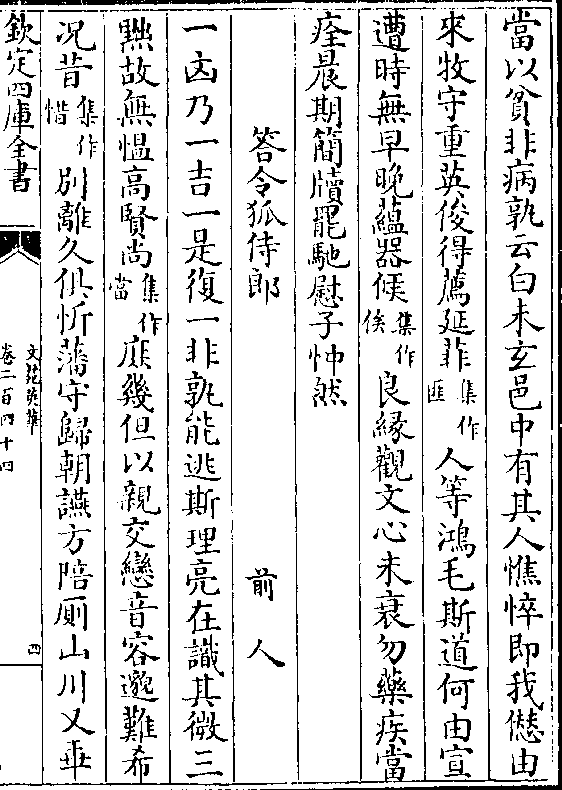 當以貧非病孰云白未玄邑中有其人憔悴即我愆由
來牧守重英俊得薦延菲集作匪人等鴻毛斯道何由宣
遭時無早晚蘊器俟集作俟良緣觀文心未衰勿藥疾當
痊晨期簡牘罷馳慰子忡然
答令狐侍郎 前人
一凶乃一吉一是復一非孰能逃斯理亮在識其微三
黜故無慍高賢尚集作當庶幾但以親交戀音容邈難希
况昔集作惜別離久俱忻藩守歸朝讌方陪厠山川又乖
欽定四庫全書
文苑英華
卷二百四十四
四